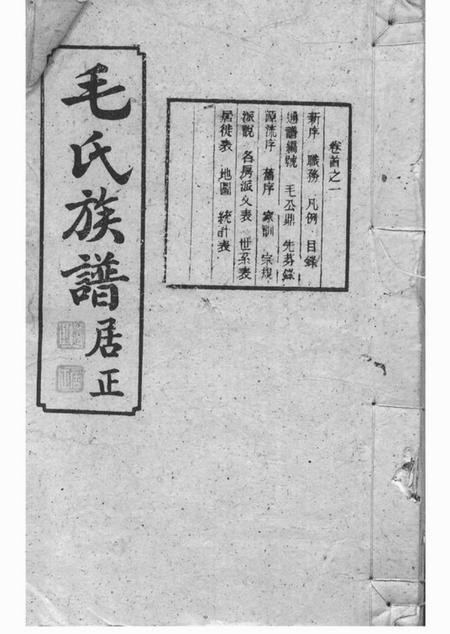 毛氏族譜
居正
卷首之一
新序 職務 凡例 目錄
通譜編號 毛公鼎 先芬錄
源流序 舊序 家訓 宗規
派說 各房派文表 世系表
居徙表 地圖 統計表